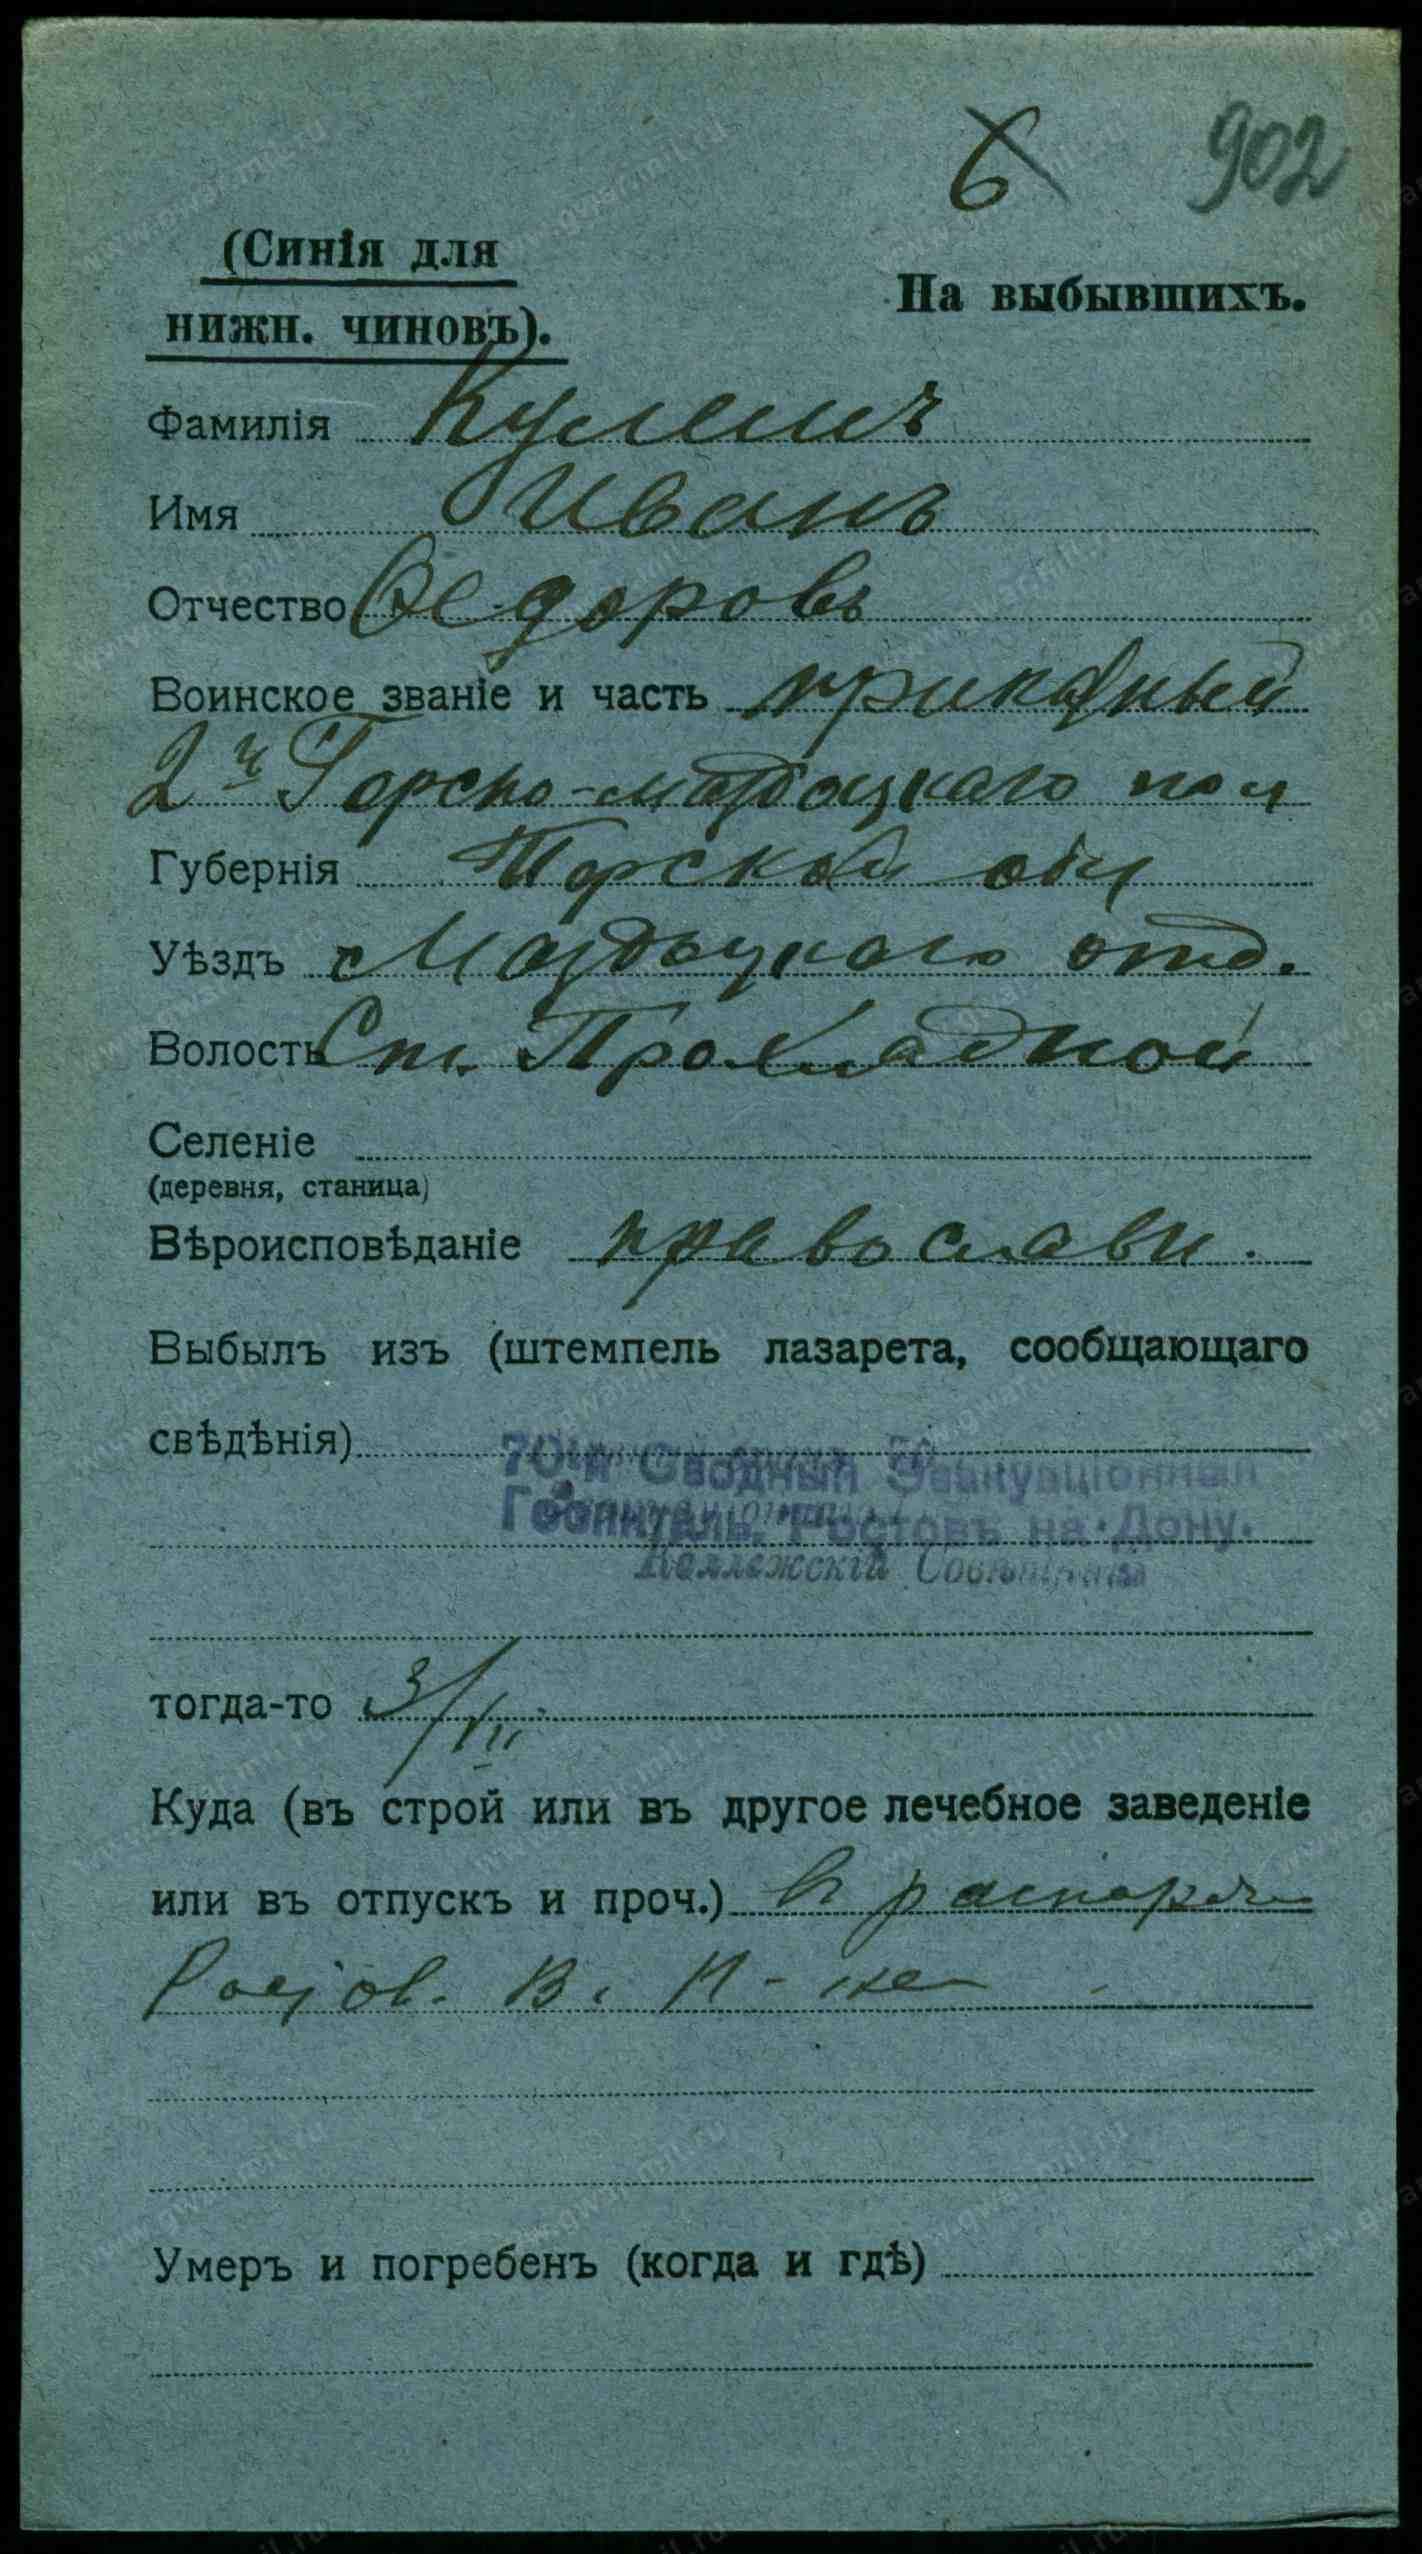 6 902
(Синія для
нижн. чиновъ).
На выбывшихъ.
Фамилія Кулешъ
Имя Иванъ
Отчество Ѳедоровъ
Воинское званіе и часть приказный
2й Горско-моздоцкаго пол
Губернія Терской обл
Уѣздъ Моздоцкаго отд.
Волость Ст. Прохладной
Селеніе
(деревня, станица)
Вѣроисповѣданіе православн.
Выбылъ изъ (штемпель лазарета, сообщающаго
свѣдѣнія)
70-й Сводный Эвакуаціонный
Госпиталь, Ростовъ на-Дону.
Коллежскій Совѣтникъ
тогда-то 3/VII
Куда (въ строй или въ другое лечебное заведеніе
или въ отпускъ и проч.) в распоряж
Росјов. В. Н-ка
Умеръ и погребенъ (когда и гдѣ)